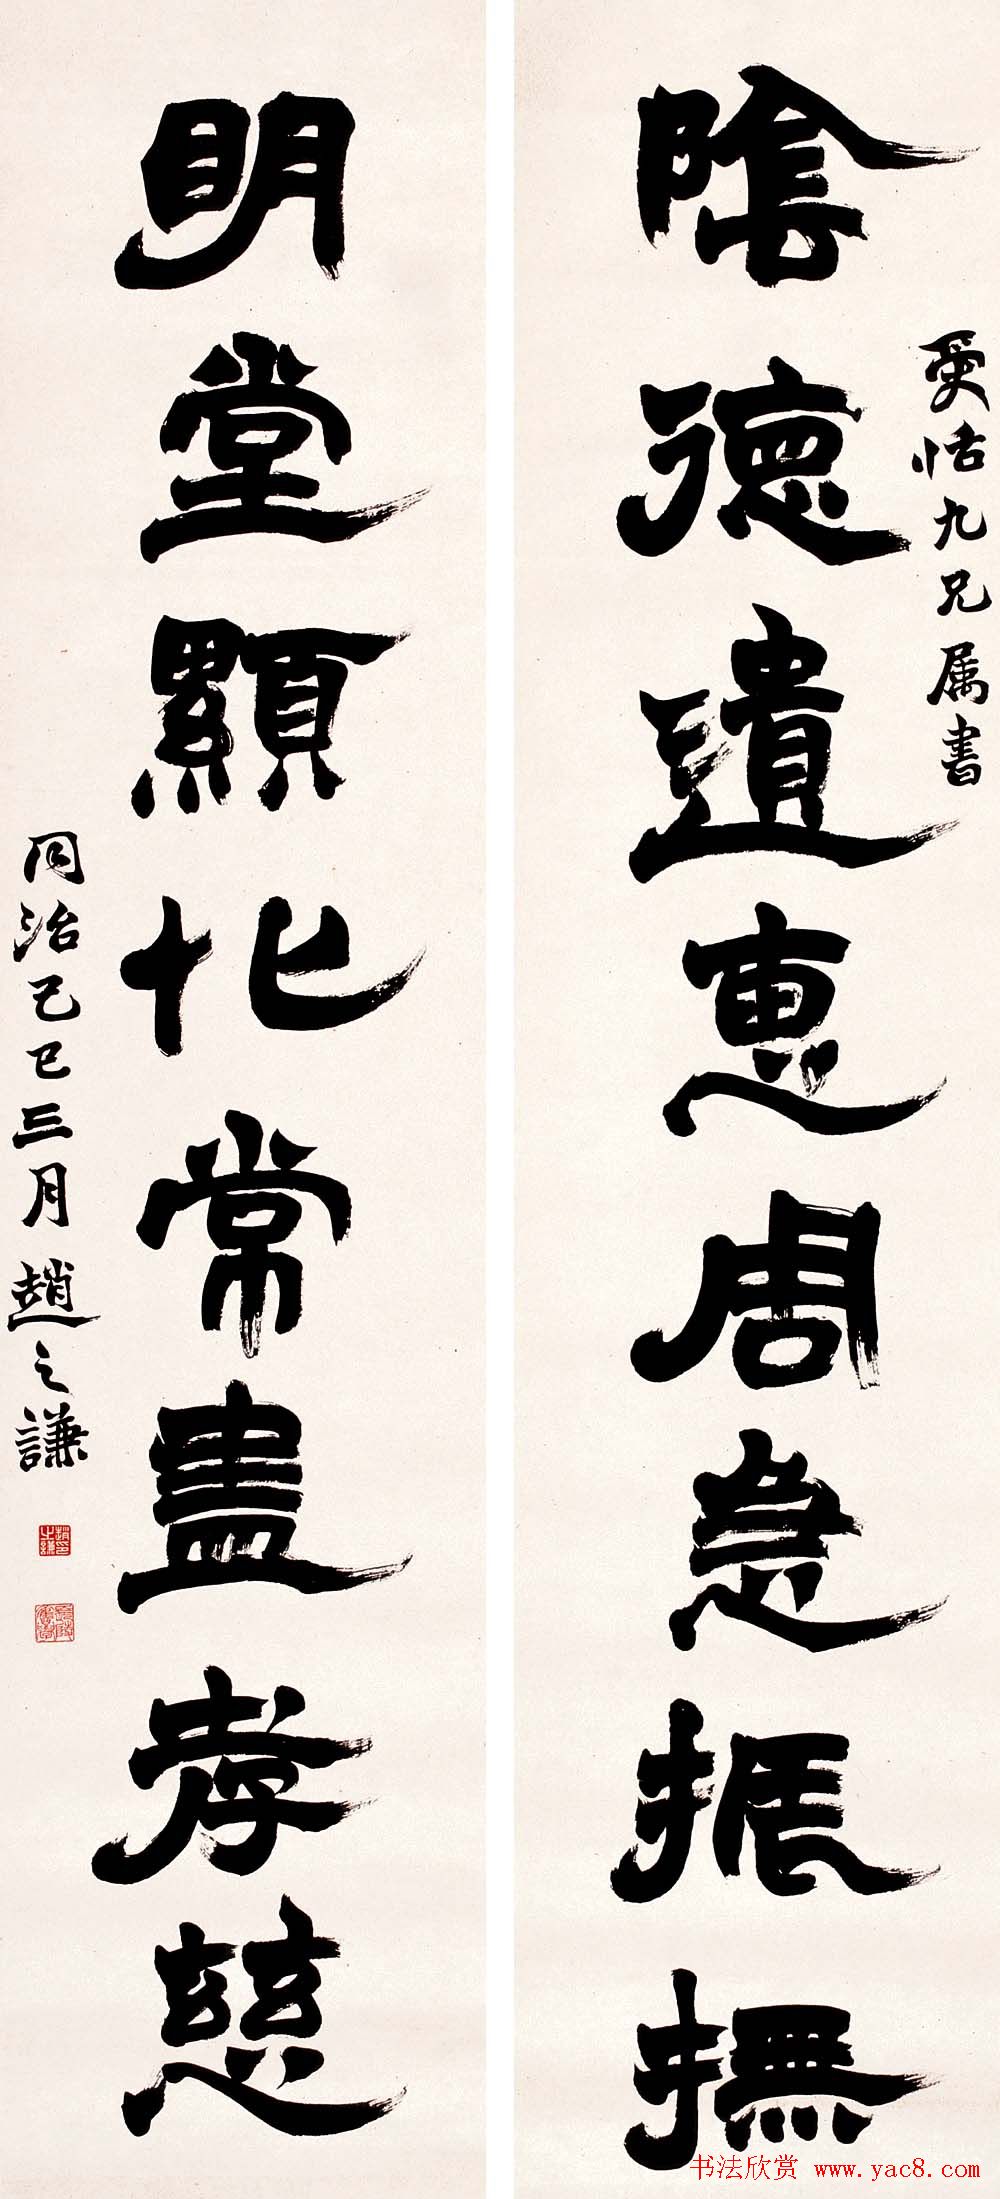 恬九兄属書
陰德遺惠周急振撫
明堂顯化常盡孝慈
同治己巳三月趙之謙
趙印之謙
书法欣赏 www.yac8.com